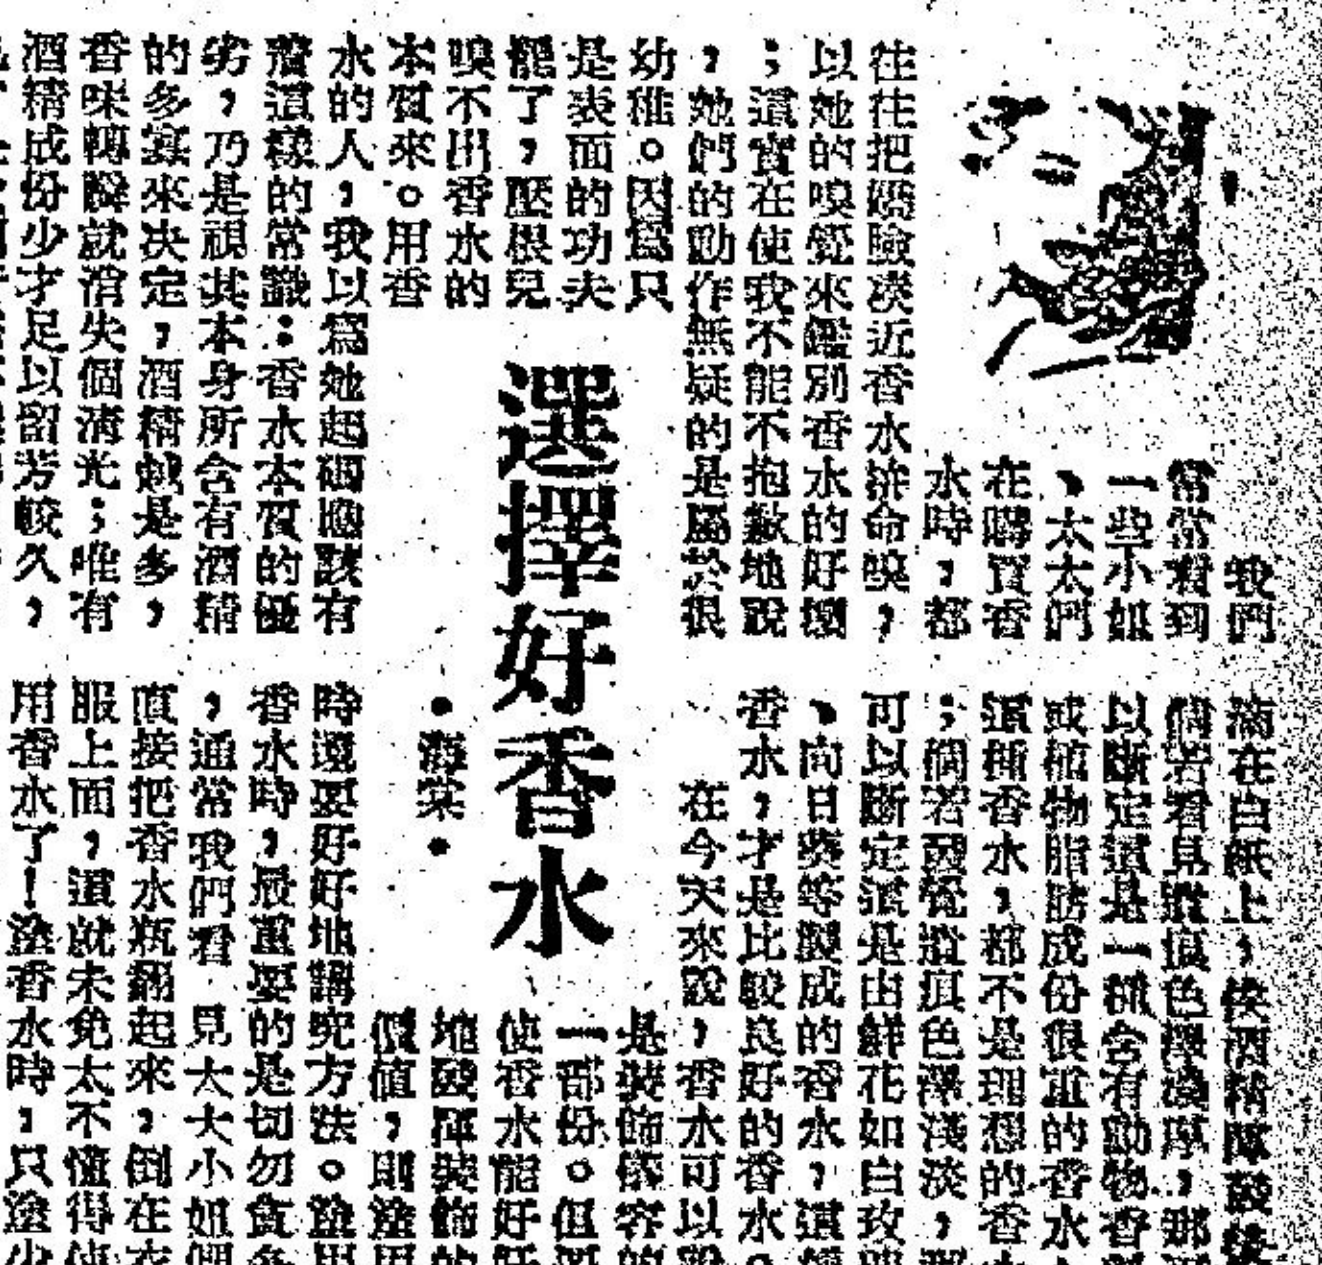 選擇好香水
•海棠•
我們
常常看到
一些小姐
、太太們
在購買香
水時，都
往往把嬌臉湊近香水拚命嗅，
以她的嗅覺來鑑別香水的好壞
；這實在使我不能不抱歉地說
，她們的動作無疑的是屬於很
幼稚。因爲只
是表面的功夫
罷了，壓根兒
嗅不出香水的
本質來。用香
水的人，我以爲她起碼應該有
這樣的常識：香水本質的優
劣，乃是視其本身所含有酒精
的多寡來決定，酒精越是多，
香味轉瞬就消失個清光；唯有
酒精成份少才足以留芳較久，
滴在白紙上，俟酒精揮發後
倘若看見痕色澤濃厚，那
以斷定這是一種含有動物香
或植物脂肪成份很重的香水
這種香水，都不是理想的香
；倘若發覺痕色澤淺淡，那
可以斷定這是由鮮花如白玫
、向日葵等製成的香水，這
香水，才是比較良好的香水。
在今天來說，香水可以說
是裝飾儀容的
一部份。但要
使香水能好好
地發揮裝飾的
價值，則塗用
時還要好好地講究方法。塗用
香水時，最重要的是切勿貪多
，通常我們看見太太小姐們
直接把香水瓶翻起來，倒在衣
服上面，這就未免太不懂得使
用香水了！塗香水時，只塗少